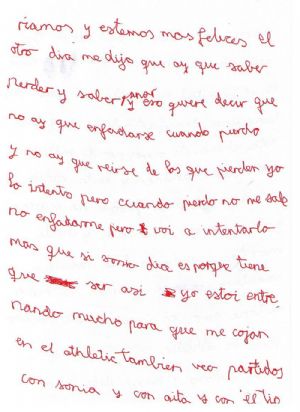 riamos y estemos mas felices el
otro dia me dijo que ay que saber
perder y saber ganar y eso quiere decir que
no ay que enfadarse cuando pierdo
y no ay que reirse de los que pierden yo
lo intento pero cuando pierdo no me sale
no enfadarme pero voi a intentarlo
mas que si sonia dia es porque tiene
que ser asi yo estoi entre
nando mucho para que me cojan
en el athletic tambien veo partidos
con sonia y con aita y con el tio